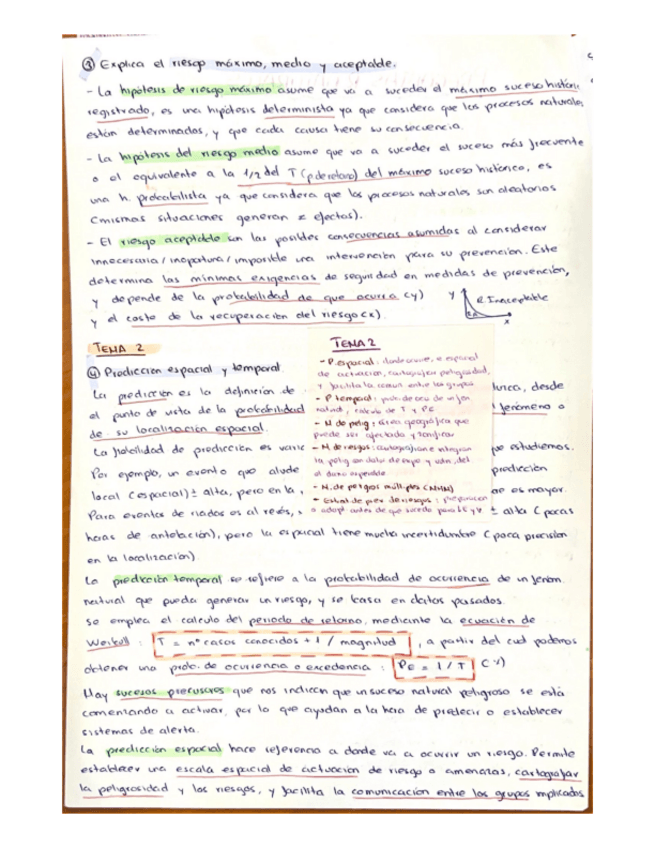 ③ Explica el riesgo máximo, medio y aceptable.
- La hipótesis de riesgo máximo asume que va a suceder el máximo suceso histór.
registrado, es una hipótesis determinista ya que considera que los procesos naturales
están determinados, y que cada causa tiene su consecuencia.
- La hipótesis del riesgo medio asume que va a suceder el suceso más frecuente
o el equivalente a la 1/2 del T (p. de retorno) del máximo suceso histórico, es
una h. probabilista ya que considera que los procesos naturales son aleatorios
(mismas situaciones generan ≠ efectos).
- El riesgo aceptable son las posibles consecuencias asumidas al considerar
innecesaria / inoportuna / imposible una intervención para su prevención. Este
determina las mínimas exigencias de seguridad en medidas de prevención,
y depende de la probabilidad de que ocurra (y)
y el coste de la recuperación del riesgo (x).
y R. Inaceptable
x
TEMA 2
④ Predicción espacial y temporal
La predicción es la definición de
el punto de vista de la probabilidad
de su localización espacial.
La fiabilidad de predicción es
Por ejemplo, un evento que alude
local (espacial) ± alta, pero en la
Para eventos de riadas es al revés,
TEMA 2
- P. espacial: donde ocurre, e. espacial
de actuación, cartografiar peligrosidad,
y facilita la comun. entre los grupos
- P. temporal: prob. de ocu. de un fen.
natural, cálculo de T y PE
- M. de pelig: área geográfica que
puede ser afectada y zonificar
- M. de riesgos: cartografían e integran
la pelig. con datos de expo y vuln, del
el daño esperable
- M. de peligros múltiples (MHM)
desde
fenómeno o
que estudiemos.
predicción
es mayor.
± alta (pocas
horas de antelación), pero la espacial tiene mucha incertidumbre (para precisión
en la localización).
La predicción temporal se refiere a la probabilidad de ocurrencia de un fenóm.
natural que pueda generar un riesgo, y se basa en datos pasados.
Se emplea el cálculo del periodo de retorno, mediante la ecuación de
Weibull: T = nº casos conocidos + 1 / magnitud, a partir del cual podemos
obtener una prob. de ocurrencia o excedencia: PE = 1 / T
Hay sucesos precursores que nos indican que un suceso natural peligroso se está
comenzando a activar, por lo que ayudan a la hora de predecir o establecer
sistemas de alerta.
La predicción espacial hace referencia a donde va a ocurrir un riesgo. Permite
establecer una escala espacial de actuación de riesgo o amenazas, cartografiar
la peligrosidad y los riesgos, y facilita la comunicación entre los grupos implicados